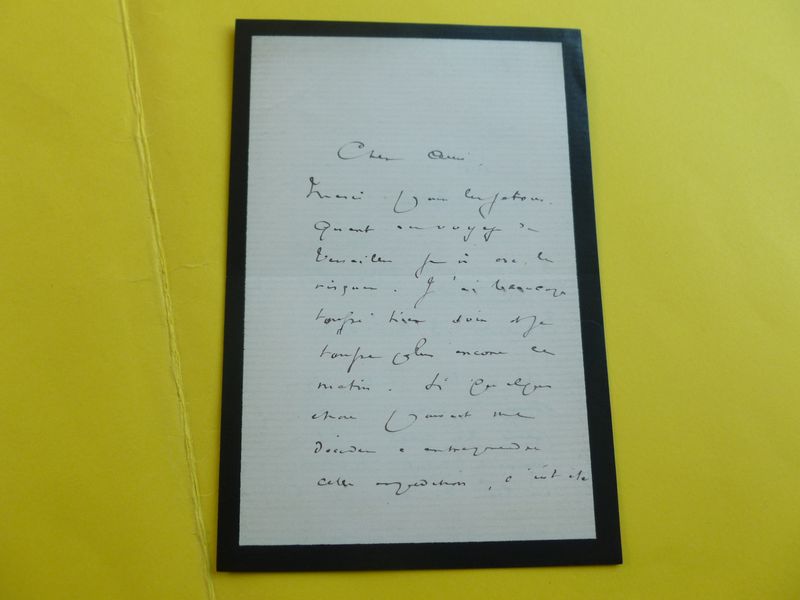 Cher ami.
Merci pour les jetons.
Quant au voyage de
Versailles je n'ose le
risquer. J'ai beaucoup
toussé hier soir et je
tousse plus encore ce
matin. Si quelque
chose pouvait me
décider à entreprendre
cette expédition, c'eût été